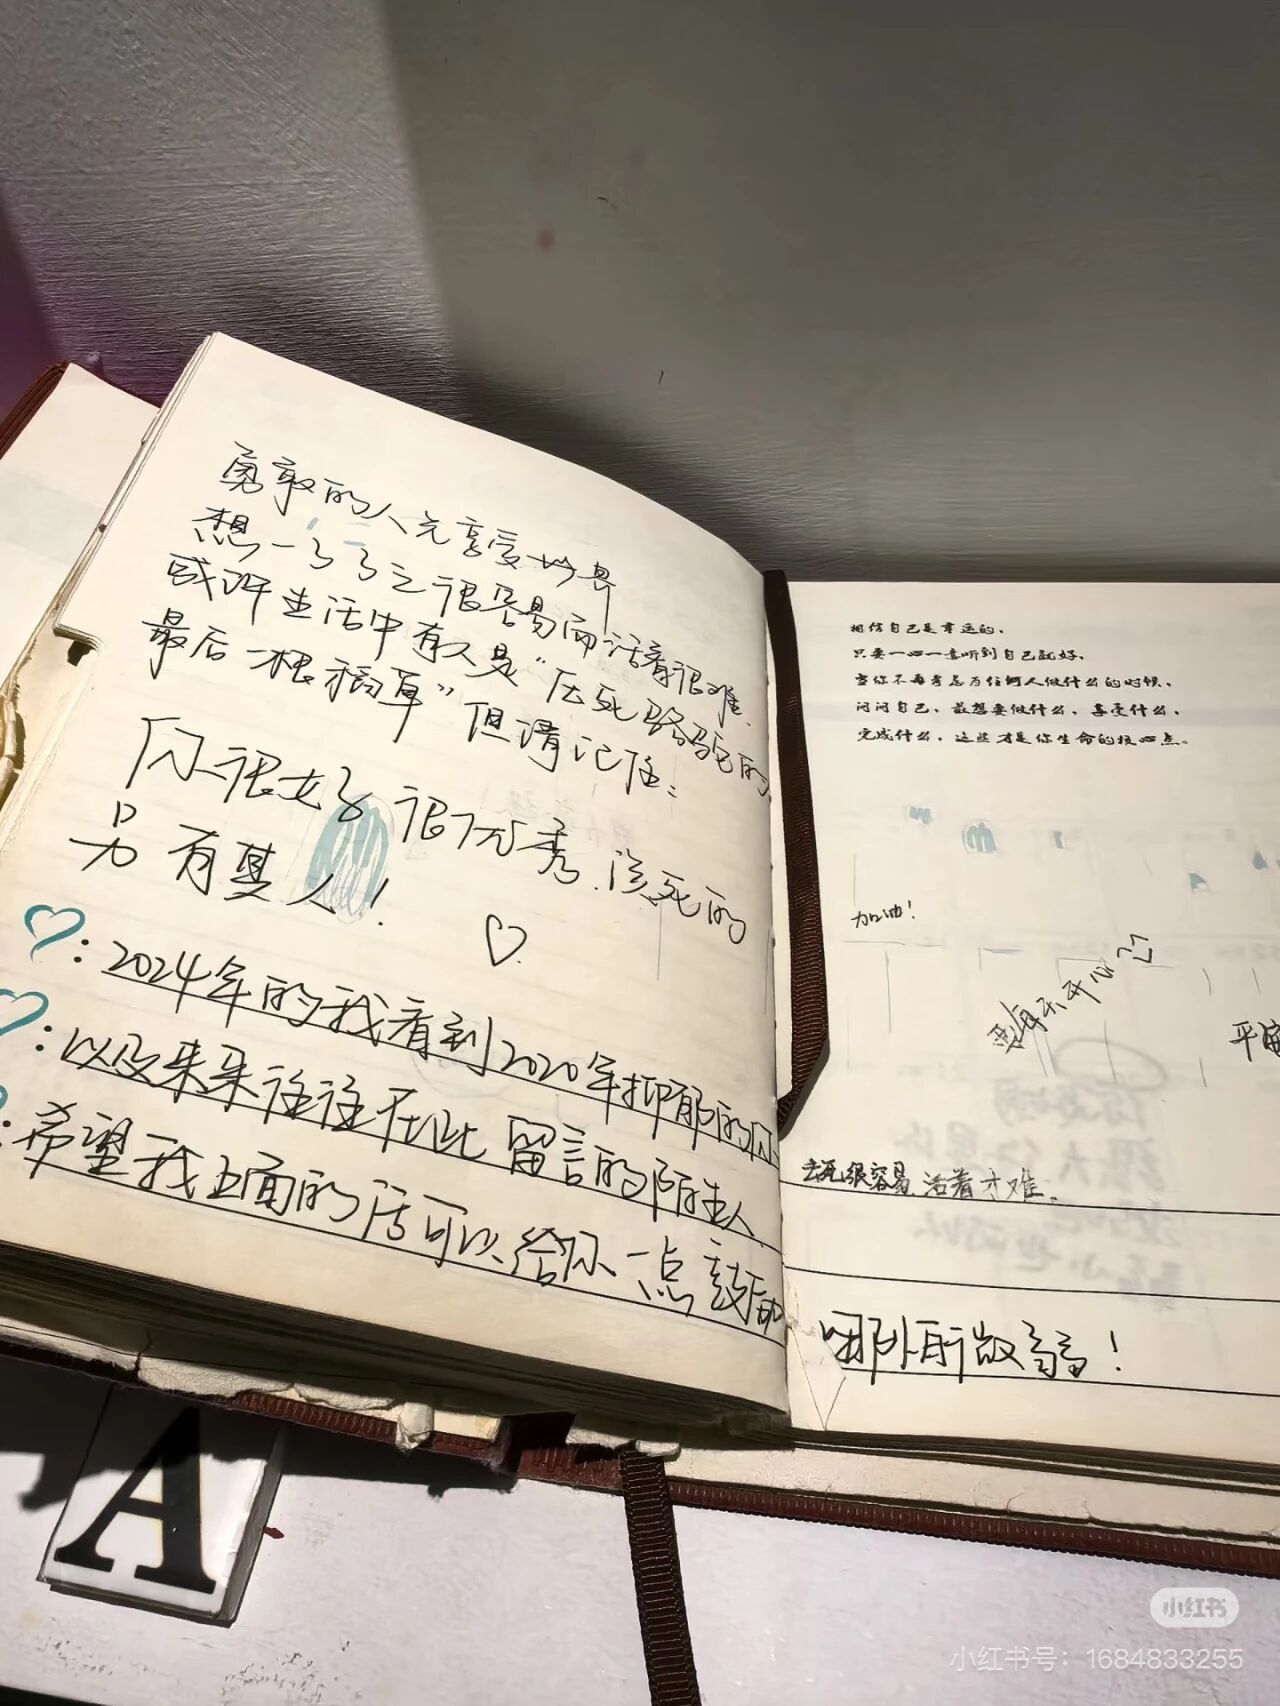 勇敢的人先享受世界
想一了了之很容易而活着很难、
或许生活中有人是“压死骆驼的
最后一根稻草”但请记住：
你很好 很优秀、该死的
另有其人！
♡
♡：2024年的我看到2020年抑郁的你
♡：以及来来往往在此留言的陌生人
：希望我上面的话可以给你一点鼓励
相信自己是幸运的，
只要一心一意听到自己就好，
当你不再考虑为任何人做什么的时候，
问问自己，最想要做什么，享受什么，
完成什么，这些才是你生命的核心点。
加油！
不开心
平
去死很容易，活着才难。
！
A
小红书
小红书号：1684833255